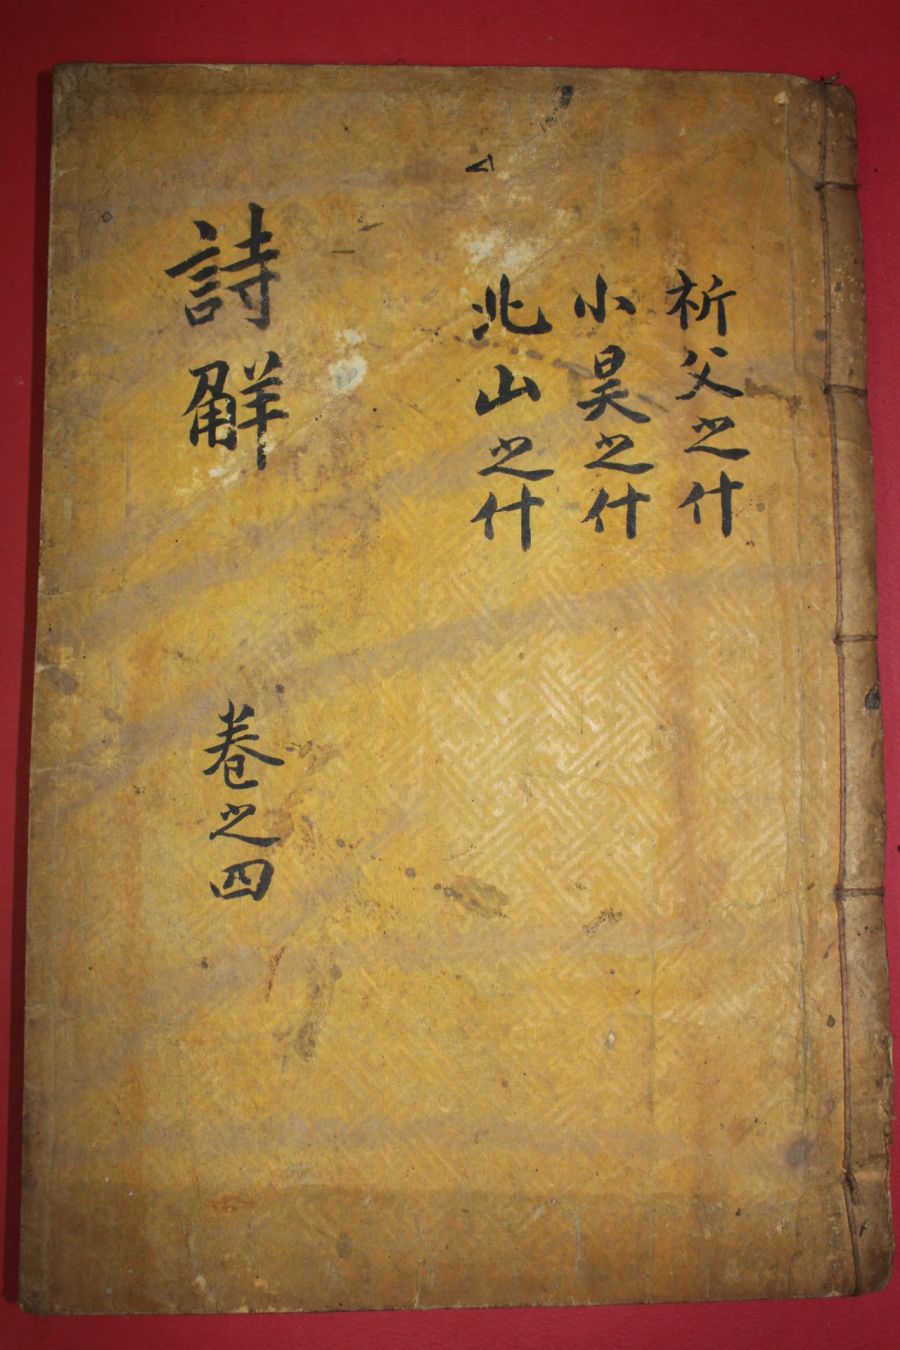 祈父之什
小昊之什
北山之什
詩觧 卷之四